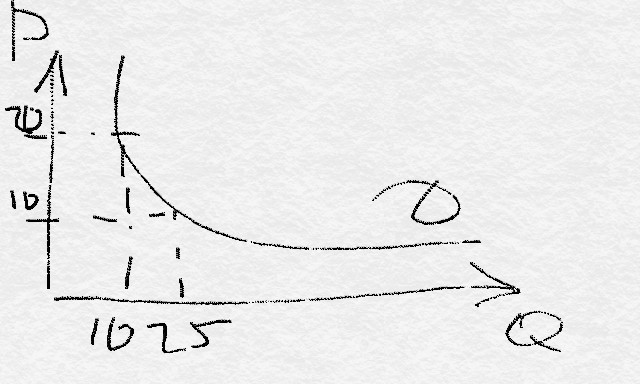 P
20
10
D
10 25
Q